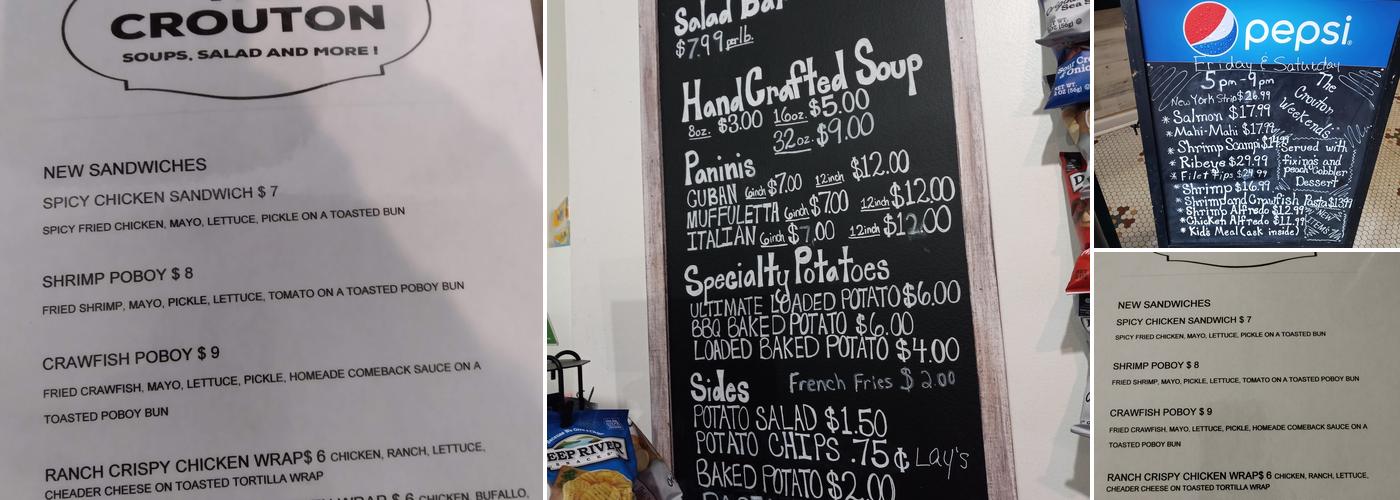 CROUTON
SOUPS, SALAD AND MORE !
NEW SANDWICHES
SPICY CHICKEN SANDWICH $ 7
SPICY FRIED CHICKEN, MAYO, LETTUCE, PICKLE ON A TOASTED BUN
SHRIMP POBOY $ 8
FRIED SHRIMP, MAYO, PICKLE, LETTUCE, TOMATO ON A TOASTED POBOY BUN
CRAWFISH POBOY $ 9
FRIED CRAWFISH, MAYO, LETTUCE, PICKLE, HOMEADE COMEBACK SAUCE ON A
TOASTED POBOY BUN
RANCH CRISPY CHICKEN WRAP$ 6 CHICKEN, RANCH, LETTUCE,
CHEADER CHEESE ON TOASTED TORTILLA WRAP
WRAP $ 6 CHICKEN, BUFALLO,
Salad Bar
$7.99 per lb.
HandCrafted Soup
8oz. $3.00 16oz. $5.00
32oz. $9.00
Paninis
CUBAN 6inch $7.00 12inch $12.00
MUFFULETTA 6inch $7.00 12inch $12.00
ITALIAN 6inch $7.00 12inch $12.00
Specialty Potatoes
ULTIMATE LOADED POTATO $6.00
BBQ BAKED POTATO $6.00
LOADED BAKED POTATO $4.00
Sides French Fries $2.00
POTATO SALAD $1.50
POTATO CHIPS .75¢ Lay's
BAKED POTATO $2.00
DEEP RIVER
SNACKS
pepsi
Friday & Saturday
5pm-9pm
The
Crouton
Weekends
New York Strip $26.99
* Salmon $17.99
* Mahi-Mahi $17.99
* Shrimp Scampi $14.99
* Ribeye $29.99
* Filet Tips $24.99
* Shrimp $16.99
* Shrimp and Crawfish Pasta $13.99
* Shrimp Alfredo $12.99
* Chicken Alfredo $11.99
* Kid's Meal (ask inside)
Served with
fixings and
peach cobbler
Dessert
NEW
ITEMS
NEW SANDWICHES
SPICY CHICKEN SANDWICH $ 7
SPICY FRIED CHICKEN, MAYO, LETTUCE, PICKLE ON A TOASTED BUN
SHRIMP POBOY $ 8
FRIED SHRIMP, MAYO, PICKLE, LETTUCE, TOMATO ON A TOASTED POBOY BUN
CRAWFISH POBOY $ 9
FRIED CRAWFISH, MAYO, LETTUCE, PICKLE, HOMEADE COMEBACK SAUCE ON A
TOASTED POBOY BUN
RANCH CRISPY CHICKEN WRAP$ 6 CHICKEN, RANCH, LETTUCE,
CHEADER CHEESE ON TOASTED TORTILLA WRAP